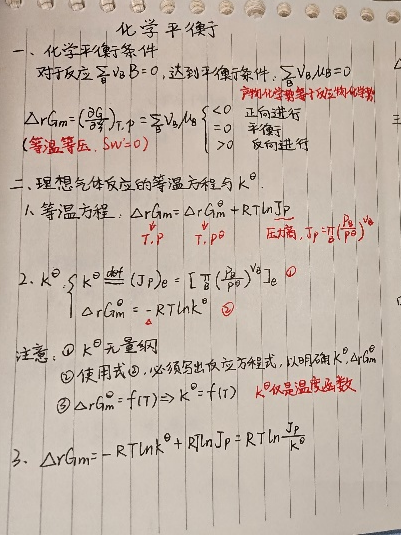 化学平衡
一、化学平衡条件
对于反应 ∑_B ν_B B=0, 达到平衡条件: ∑_B ν_B μ_B=0
产物化学势等于反应物化学势
ΔrGm=(∂G/∂ξ)_T,P=∑_B ν_B μ_B { <0 正向进行
=0 平衡
>0 反向进行
(等温等压, δw'=0)
二、理想气体反应的等温方程与K^θ.
1、等温方程. ΔrGm=ΔrGm^θ+RTlnJp
T,P T,P^θ 压力商, Jp=π_B(P_B/P^θ)^ν_B
2. K^θ. { K^θ def (Jp)e=[π_B(P_B/P^θ)^ν_B]e ①
ΔrGm^θ=-RTlnK^θ ②
注意: ① K^θ无量纲
② 使用式②, 必须写出反应方程式, 以明确K^θ,ΔrGm^θ
③ ΔrGm^θ=f(T)⇒K^θ=f(T) K^θ仅是温度函数
3、ΔrGm=-RTlnK^θ+RTlnJp=RTln Jp/K^θ